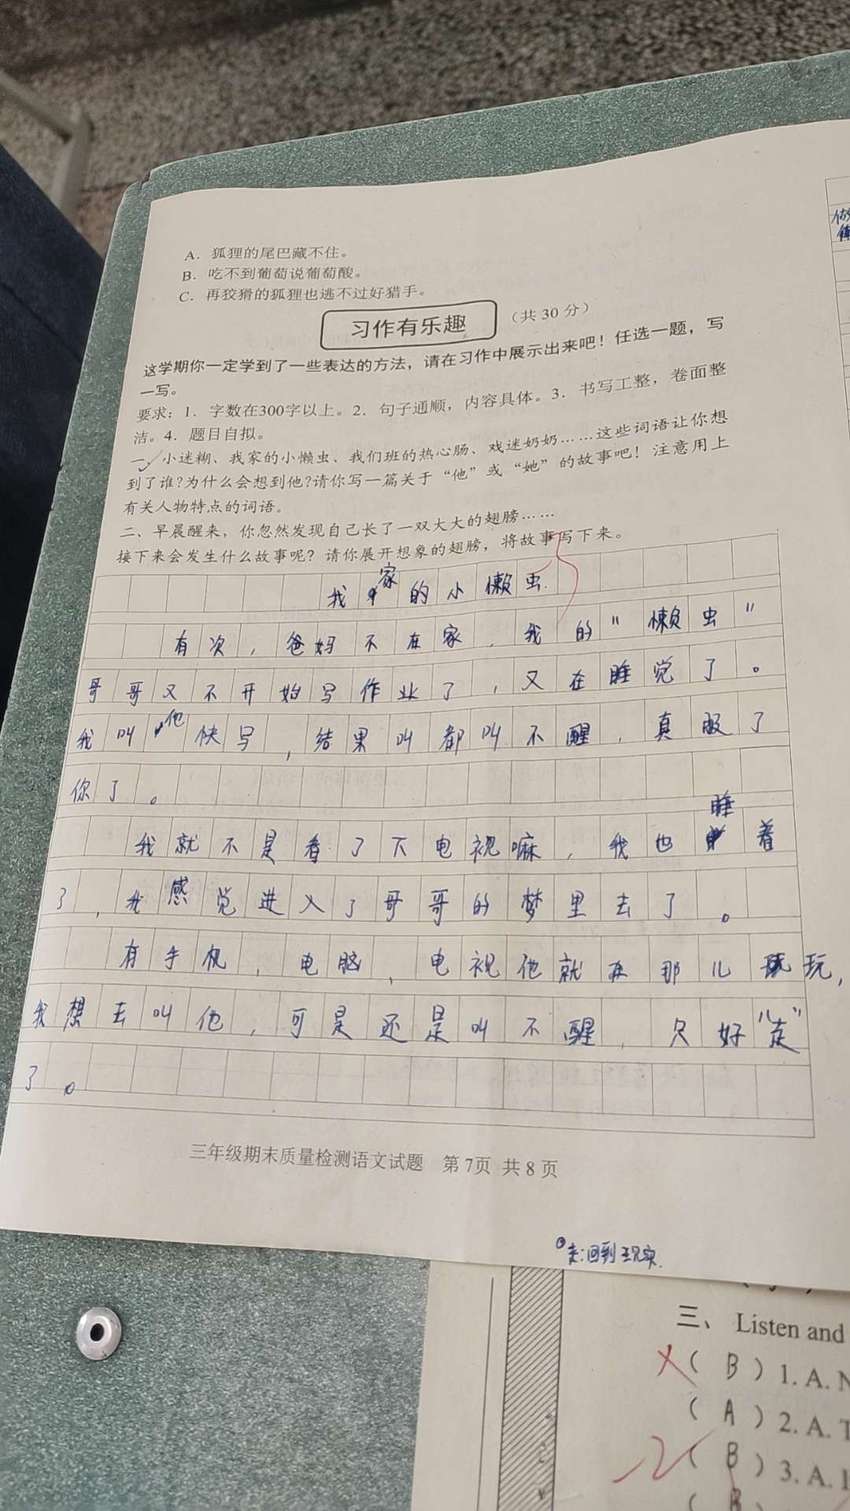 A. 狐狸的尾巴藏不住。
B. 吃不到葡萄说葡萄酸。
C. 再狡猾的狐狸也逃不过好猎手。
习作有乐趣 (共 30 分)
这学期你一定学到了一些表达的方法，请在习作中展示出来吧！任选一题，写
一写。
要求：1. 字数在300字以上。2. 句子通顺，内容具体。3. 书写工整，卷面整
洁。4. 题目自拟。
一、小迷糊、我家的小懒虫、我们班的热心肠、戏迷奶奶……这些词语让你想
到了谁?为什么会想到他?请你写一篇关于“他”或“她”的故事吧！注意用上
有关人物特点的词语。
二、早晨醒来，你忽然发现自己长了一双大大的翅膀……
接下来会发生什么故事呢？请你展开想象的翅膀，将故事写下来。
我家的小懒虫
有次，爸妈不在家，我的“懒虫”
哥哥又不开始写作业了，又在睡觉了。
我叫他快写，结果叫都叫不醒，真服了
你了。
我就不是看了下电视嘛，我也睡着
了，我感觉进入了哥哥的梦里去了。
有手机，电脑，电视他就在那儿玩，
我想去叫他，可是还是叫不醒，只好“走”
了。
三年级期末质量检测语文试题 第7页 共8页
走:回到现实.
三、 Listen and
( B ) 1. A.
( A ) 2. A.
( B ) 3. A.